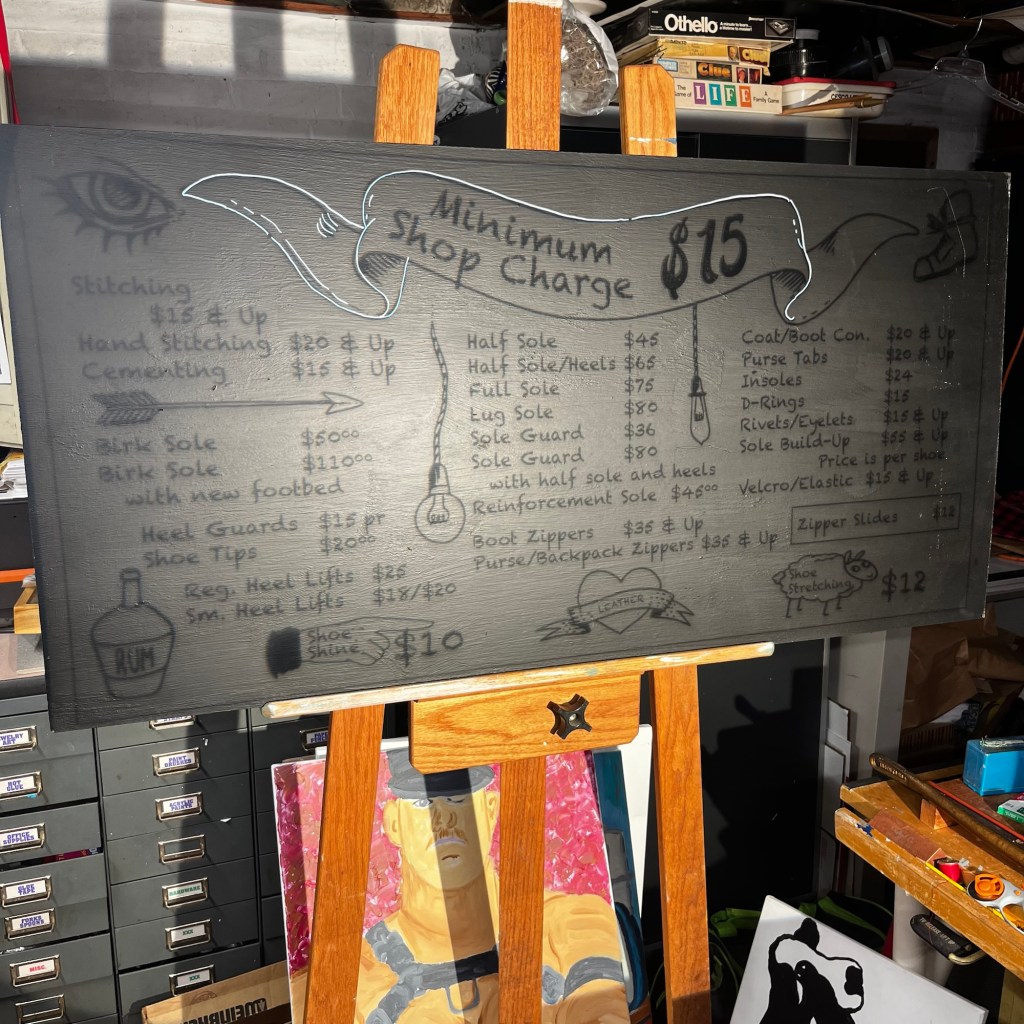 Othello
Clue
The Game of LIFE A Family Game
Minimum
Shop Charge $15
Stitching
$15 & Up
Hand Stitching $20 & Up
Cementing $15 & Up
Birk Sole $50⁰⁰
Birk Sole $110⁰⁰
with new footbed
Heel Guards $15 pr
Shoe Tips $20⁰⁰
Reg. Heel Lifts $25
Sm. Heel Lifts $18/$20
RUM
Shoe
Shine $10
Half Sole $45
Half Sole/Heels $65
Full Sole $75
Lug Sole $80
Sole Guard $36
Sole Guard $80
with half sole and heels
Reinforcement Sole $45⁰⁰
Boot Zippers $35 & Up
Purse/Backpack Zippers $35 & Up
LEATHER
Coat/Boot Con. $20 & Up
Purse Tabs $20 & Up
Insoles $24
D-Rings $15
Rivets/Eyelets $15 & Up
Sole Build-Up $55 & Up
Price is per shoe.
Velcro/Elastic $15 & Up
Zipper Slides $12
Shoe
Stretching $12
JEWELRY
ART
HOT
GLUE
OFFICE
SUPPLIES
GLUE
TAPE
FORKS
SPOONS
MISC.
PAINT
BRUSHES
ACRYLIC
PAINTS
HARDWARE
XXX
XXX